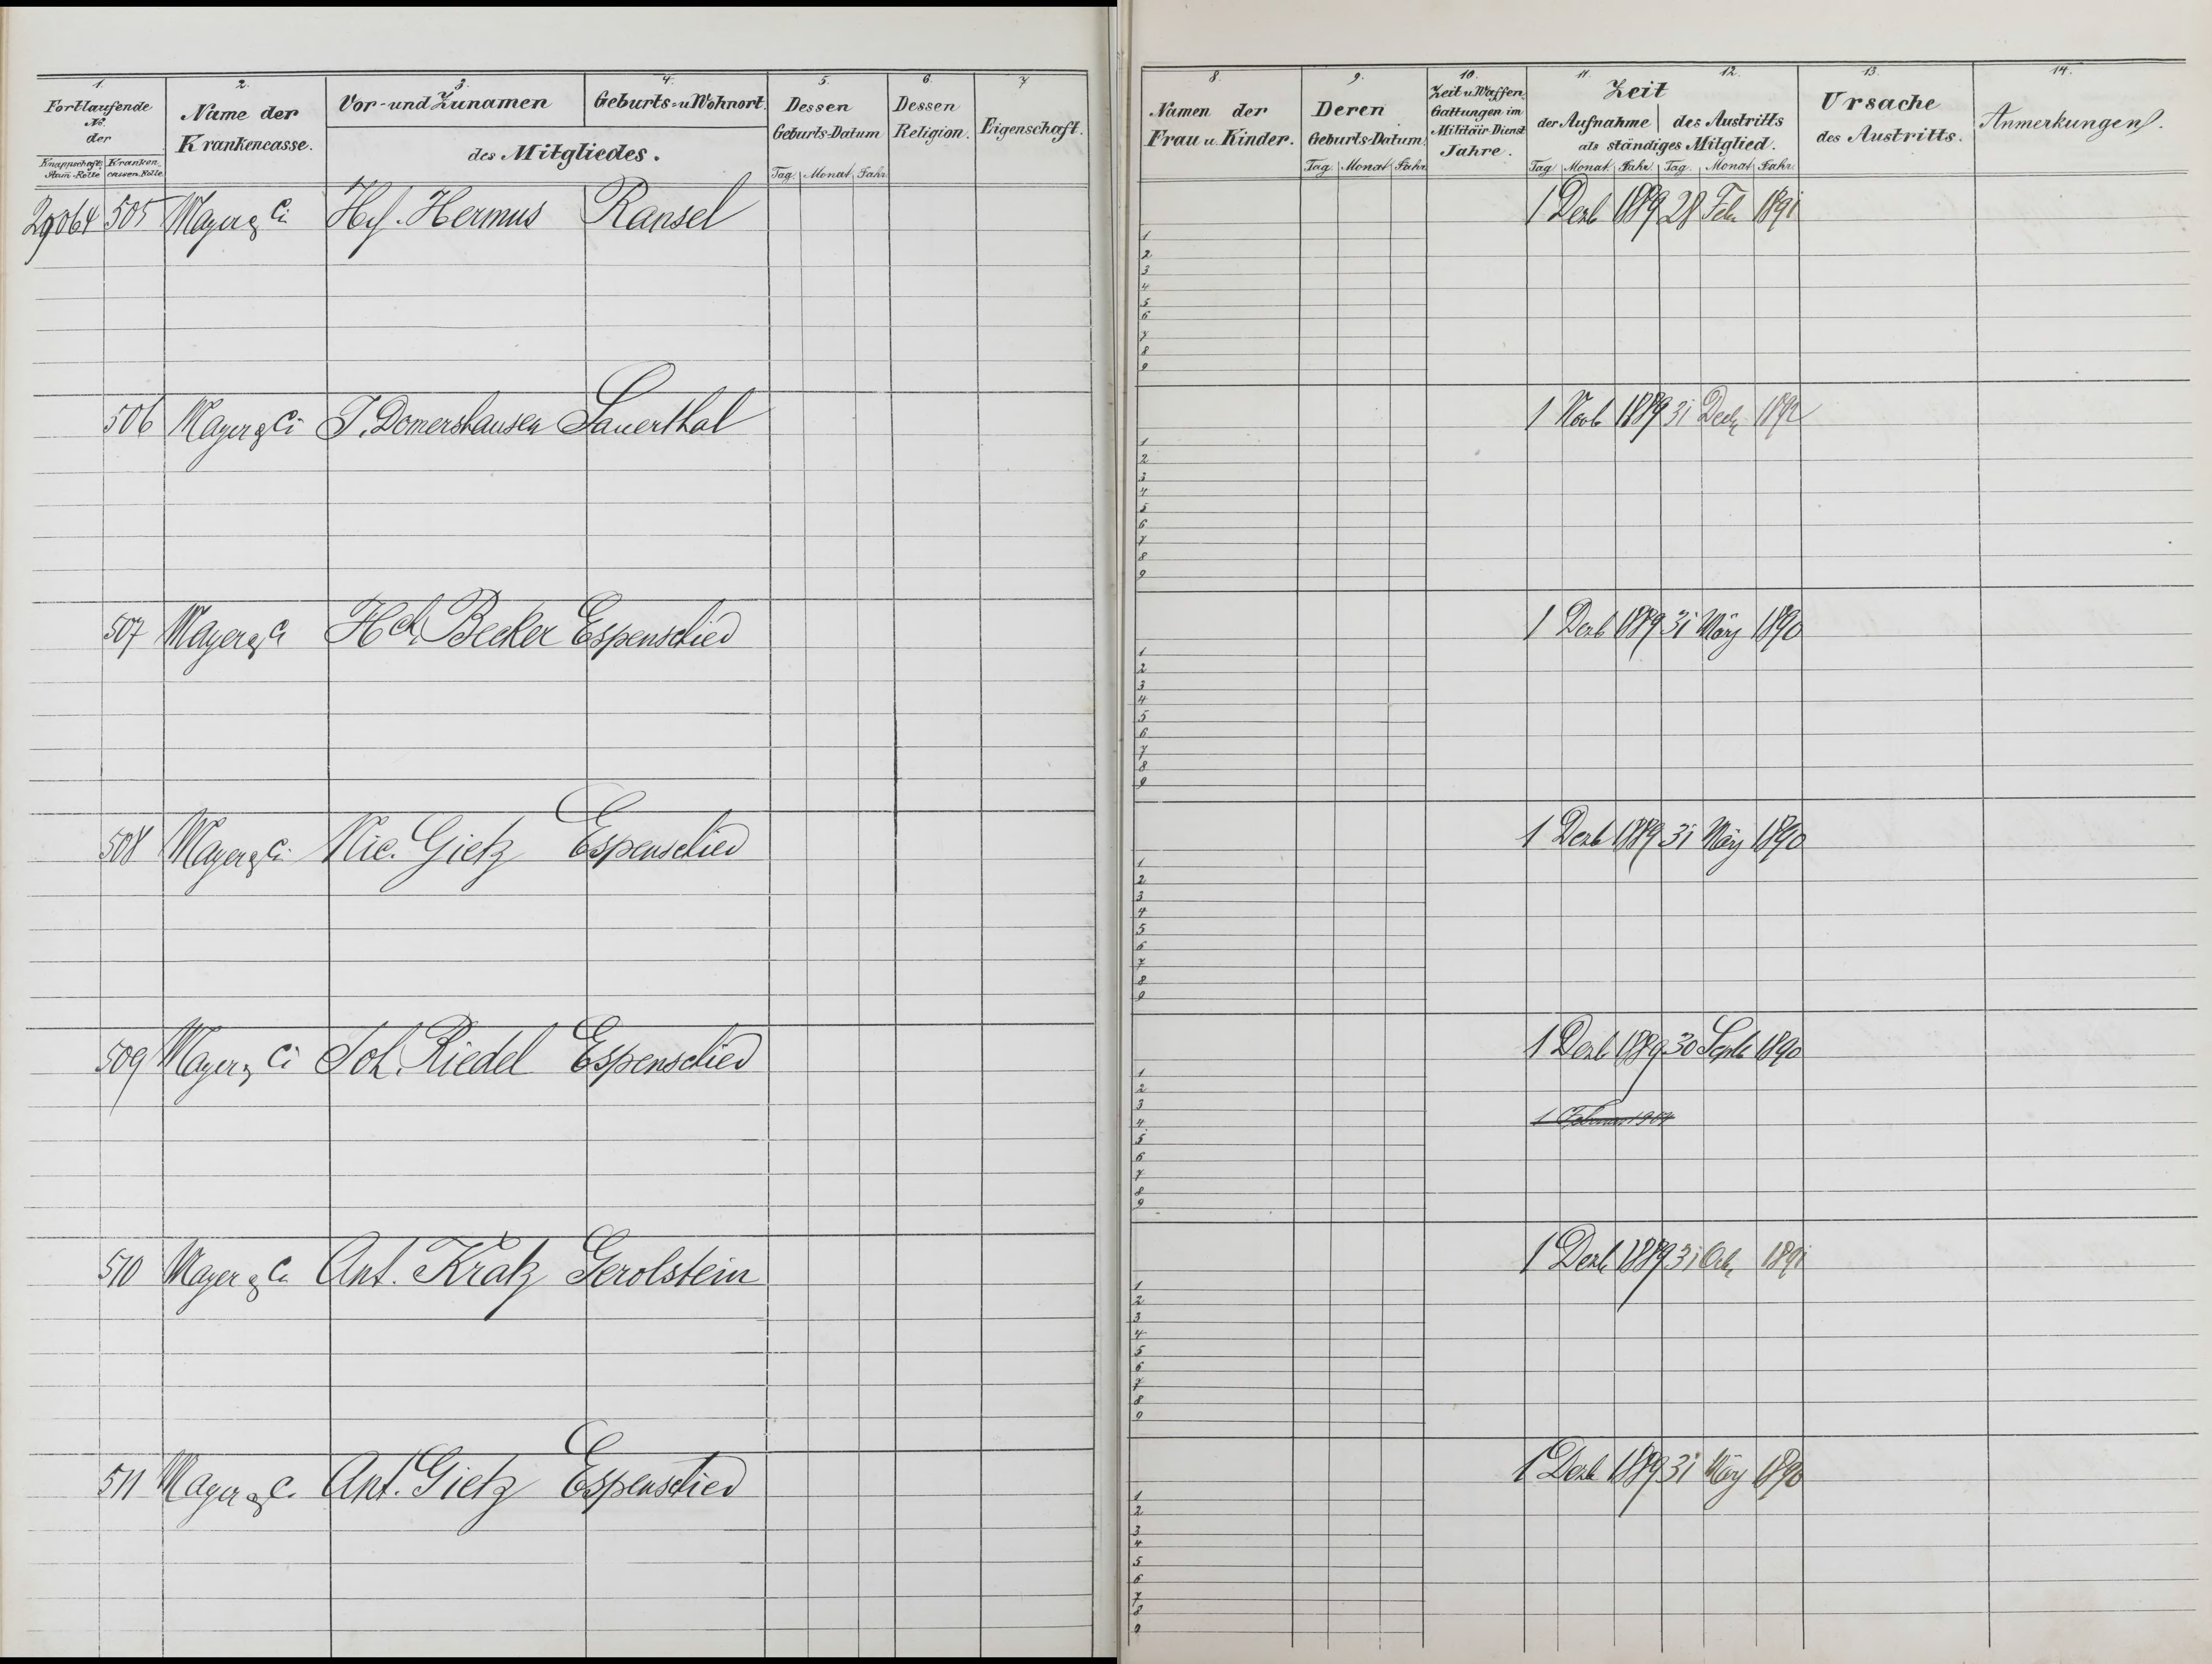 1. 2. 3. 4. 5. 6. 7
Fortlaufende No. der
Knappschafts Stam-Rolle Kranken cassen Rolle
Name der Krankencasse.
Vor- und Zunamen
Geburts- u. Wohnort
des Mitgliedes.
Dessen Geburts-Datum
Tag. Monat Jahr
Dessen Religion.
Eigenschaft.
8. 9. 10. 11. 12. 13. 14.
Namen der Frau u. Kinder.
Deren Geburts-Datum
Tag. Monat Jahr
Zeit u. Waffen Gattungen im Militair Dienst Jahre.
Zeit
der Aufnahme des Austritts
als ständiges Mitglied.
Tag Monat. Jahr. Tag. Monat Jahr.
Ursache des Austritts.
Anmerkungen.
505 Mayer & Ci Hermus Ransel 1 Dezb 1889 28 Feb 1891
1
2
3
4
5
6
7
8
9
506 Mayer & Ci J. Domershausen Sauerthal 1 Novb 1889 31 1892
1
2
3
4
5
6
7
8
9
507 Mayer & Ci Hch. Becker Espenschied 1 Dezb 1889 31 März 1890
1
2
3
4
5
6
7
8
9
508 Mayer & Ci Nic. Gietz Espenschied 1 Dezb 1889 31 März 1890
1
2
3
4
5
6
7
8
9
509 Mayer & Ci Joh. Riedel Espenschied 1 Dezb 1889 30 Septb 1890
1
2
3
4
5
6
7
8
9
510 Mayer & Ci Ant. Kratz Gerolstein 1 Dezb 1889 31 1891
1
2
3
4
5
6
7
8
9
511 Mayer & Ci Ant. Gietz Espenschied 1 Dezb 1889 31 März 1890
1
2
3
4
5
6
7
8
9